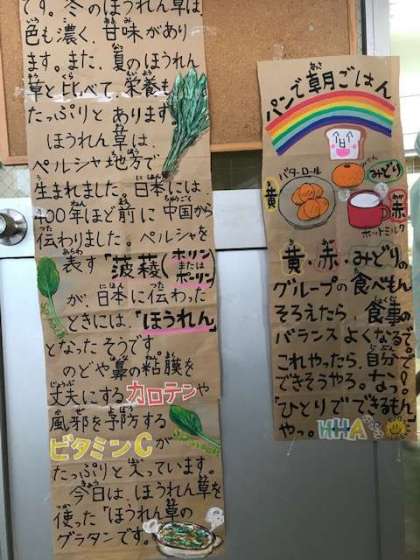 です。冬のほうれん草は
色も濃く、甘味があり
ます。また、夏のほうれん
草と比べて、栄養も
たっぷりとあります。
ほうれん草は、
ペルシャ地方で
生まれました。日本には、
400年ほど前に中国から
伝わりました。ペルシャを
表す「菠薐(ホリン または ホーリン)
が、日本に伝わった
ときには、「ほうれん」
となったそうです
のどや鼻の粘膜を
丈夫にするカロテンや
風邪を予防する
ビタミンCが
たっぷりと入っています。
今日は、ほうれん草を
使った「ほうれん草の
グラタン」です。
パンで朝ごはん
バターロール
みどり
黄
赤
ホットミルク
黄・赤・みどりの
グループの食べもん
そろえたら、食事の
バランスよくなるで。
これやったら、自分で
できそうやろ。なっ!
「ひとりでできるもん」
やっ。HHA